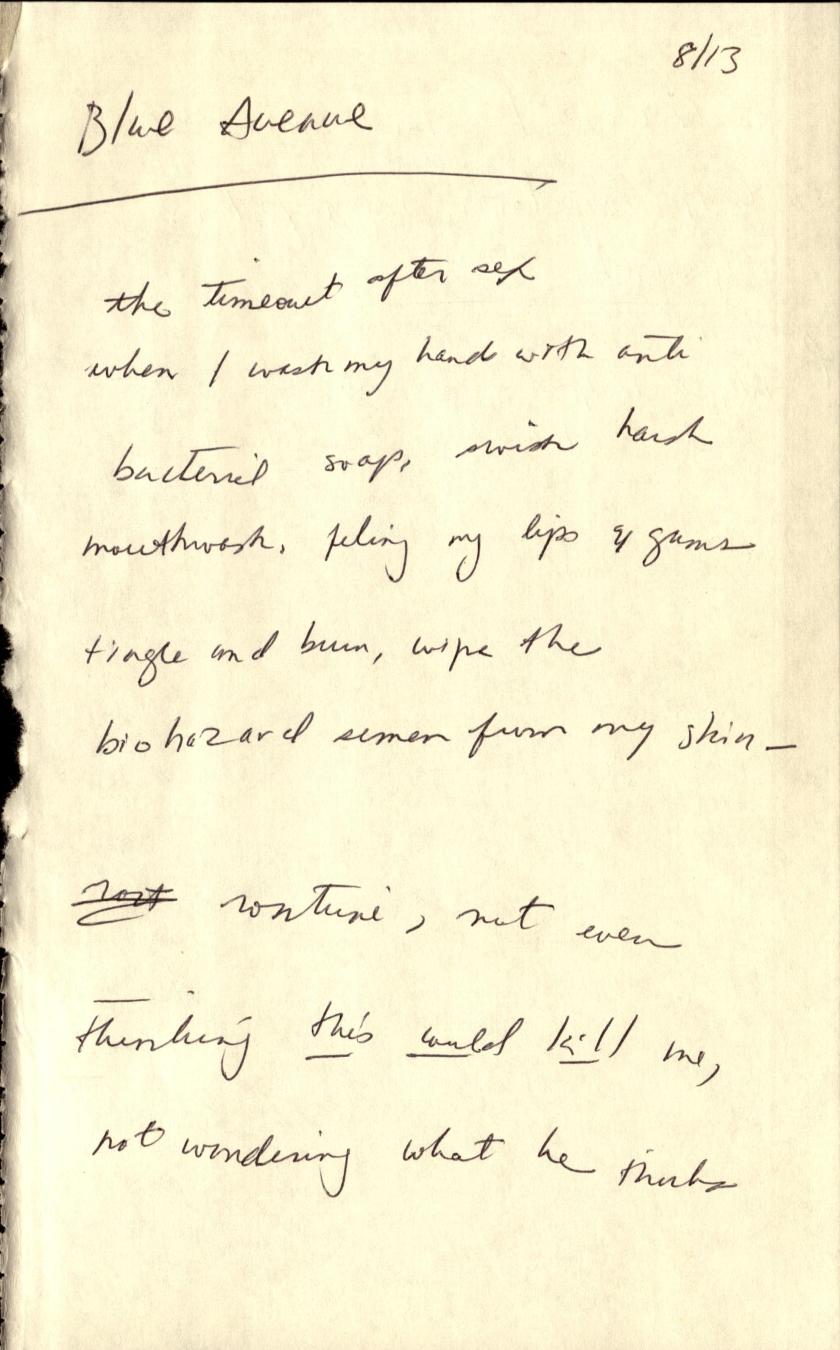 8/13
Blue Avenue
the timeout after sex
when I wash my hands with anti
bacterial soap, swish harsh
mouthwash, feeling my lips & gums
tingle and burn, wipe the
biohazard semen from my skin—
rout routine, not even
thinking this could kill me,
not wondering what he thinks